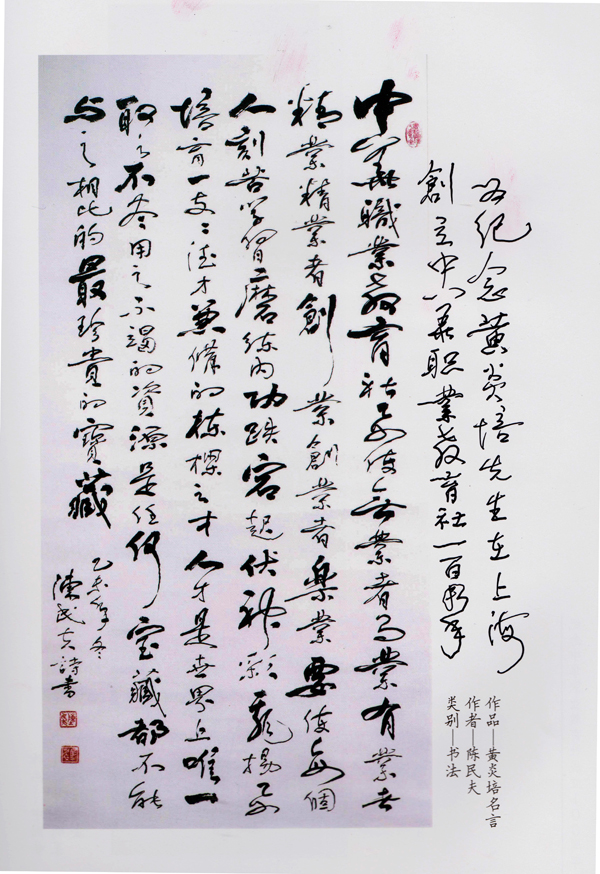 为纪念黄炎培先生在上海
創立中华职業教育社一百周年
作品——黄炎培名言
作者——陈民夫
类别——书法
中華職業教育社要使無業者有業有業者
精業精業者創業創業者樂業要使每個
人刻苦学習磨练内功跌宕起伏神彩飛揚要
培育一支支德才兼備的栋樑之才人才是世界上唯一
取之不尽用之不竭的資源是任何宝藏都不能
与之相比的最珍貴的寶藏
乙未年冬
陳民夫詩書